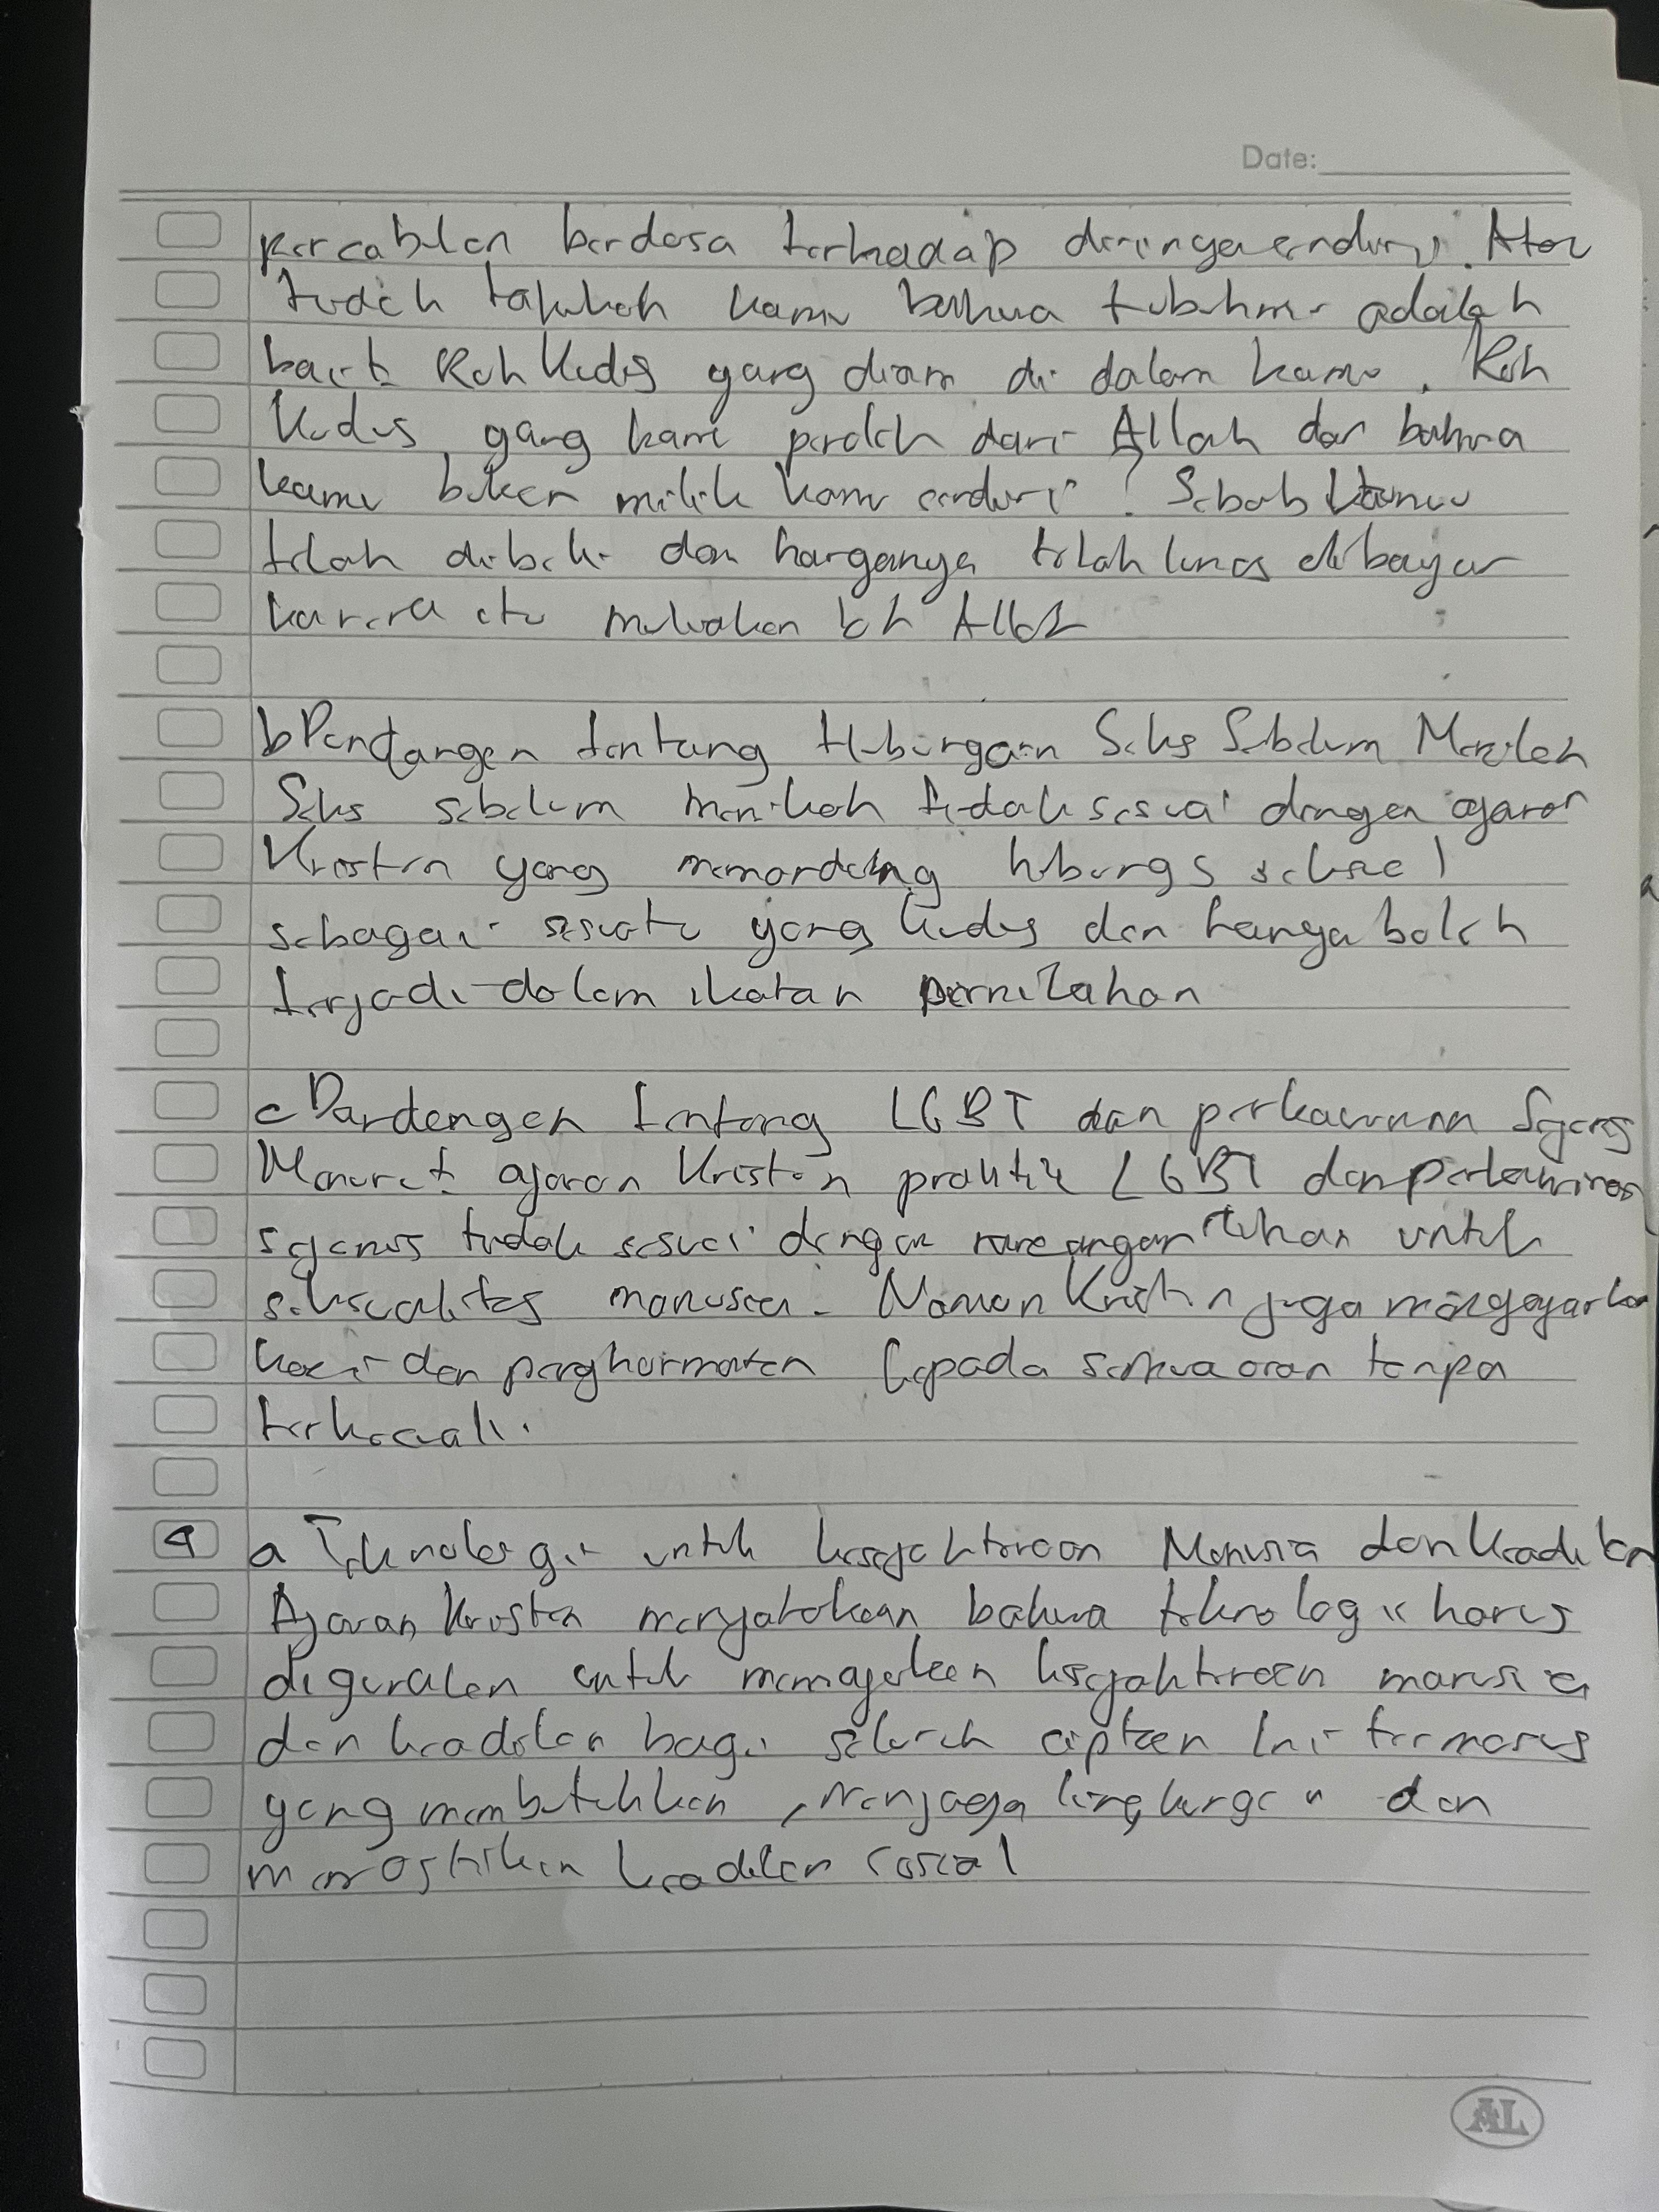 Date:
percabulan berdosa terhadap dirinya sendiri. Atau
tidak tahukah kamu bahwa tubuhmu adalah
bait Roh Kudus yang diam di dalam kamu, Roh
Kudus yang kamu peroleh dari Allah dan bahwa
kamu bukan milik kamu sendiri? Sebab kamu
telah dibeli dan harganya telah lunas dibayar
karena itu muliakan lah Allah
b Pandangan tentang Hubungan Seks Sebelum Menikah
Seks sebelum menikah tidak sesuai dengan ajaran
Kristen yang memandang hubungs seksual
sebagai sesuatu yang kudus dan hanya boleh
terjadi dalam ikatan pernikahan
c Pandangan tentang LGBT dan perkawinan Sejenis
Menurut ajaran Kristen praktik LGBT dan perkawinan
sejenis tidak sesuai dengan rancangan Tuhan untuk
seksualitas manusia. Namun Kristen juga mengajarkan
kasih dan penghormatan kepada semua oran tanpa
terkecuali.
4 a Teknologi untuk kesejahteraan Manusia dan Keadilan
Ajaran Kristen menyatakan bahwa teknologi harus
digunakan untuk memajukan kesejahteraan manusia
dan keadilan bagi seluruh ciptaan Ini termasus
yang membutuhkan, menjaga lingkungan dan
memastikan keadilan sosial
AL